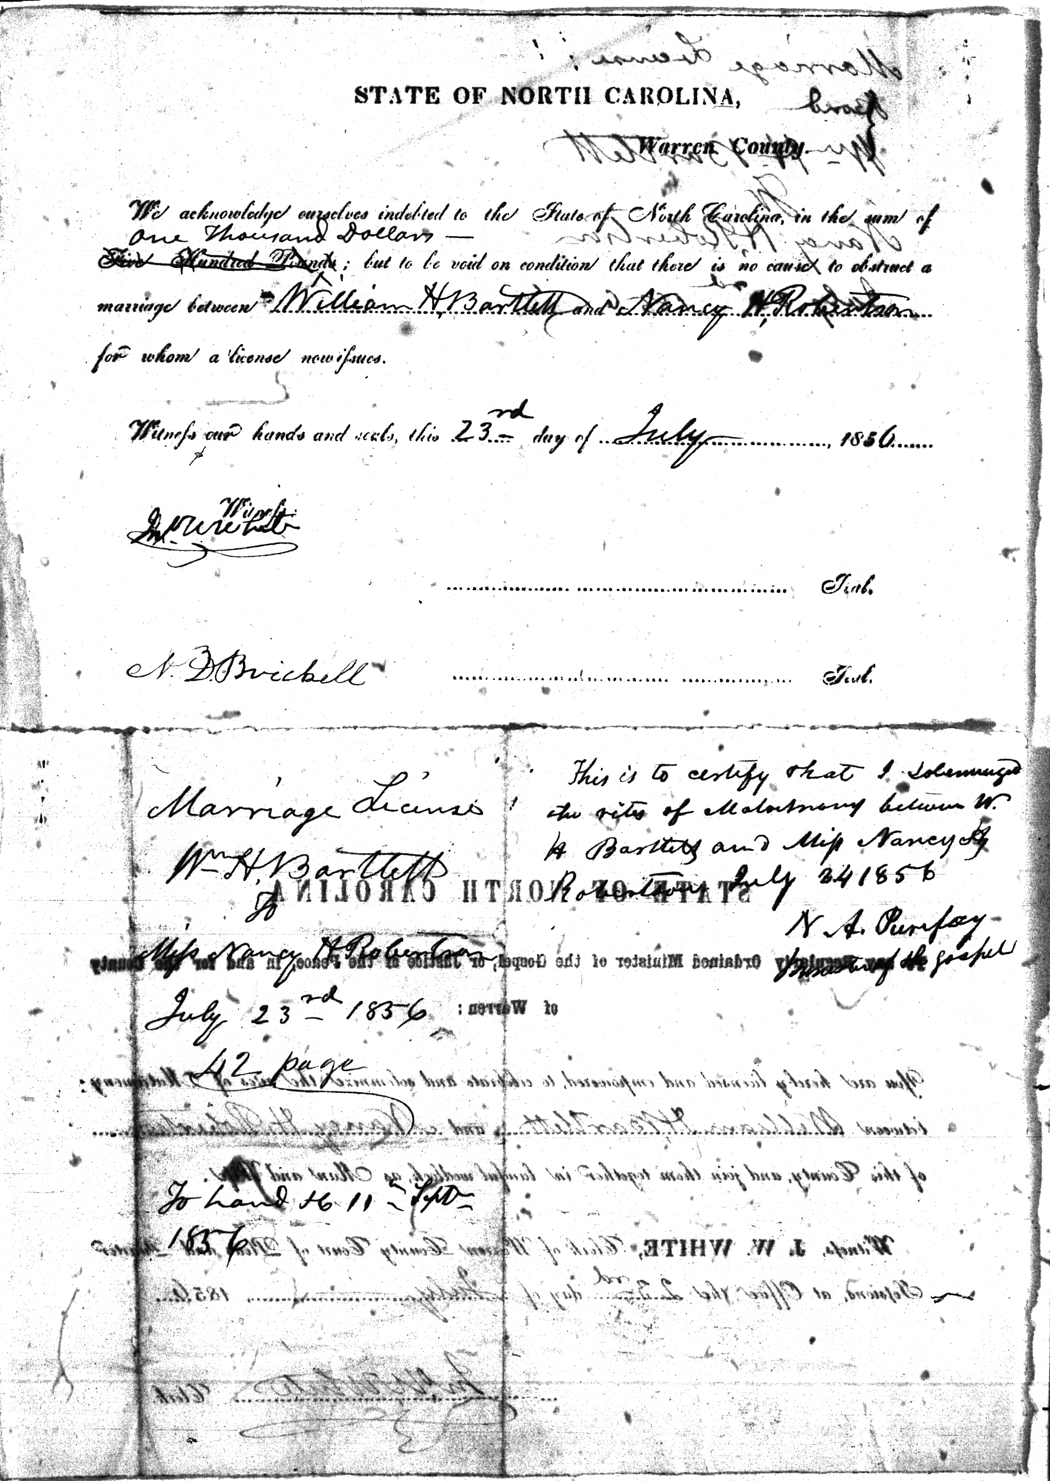 STATE OF NORTH CAROLINA,
Warren County.
We acknowledge ourselves indebted to the State of North Carolina, in the sum of
One Thousand Dollars —
Five Hundred Pounds; but to be void on condition that there is no cause to obstruct a
marriage between William H. Bartlett and Nancy H. Robertson
for whom a license now issues.
Witness our hands and seals, this 23rd day of July, 1856
Witness:
Jno. W. White
Seal.
N. D. Brickell Seal.
Marriage License
Wm H. Bartlett
To
Miss Nancy H Robertson
July 23rd 1856
42 page
To hand 11th Sept
1856
This is to certify that I solemnized
the rites of Matrimony between W.
H Bartlett and Miss Nancy H
Robertson July 24 1856
N. A. Purefoy
Minister of the gospel
STATE OF NORTH CAROLINA
To any Regularly Ordained Minister of the Gospel, or Justice of the Peace, in and for the County
of Warren:
You are hereby licensed and empowered to celebrate and solemnize the rites of Matrimony:
between William H. Bartlett and Nancy H. Robertson
of this County, and join them together in lawful wedlock, as Man and Wife.
Witness, J. W. WHITE, Clerk of Warren County Court of Pleas and Quarter
Sessions, at Office the 23rd day of July, 1856
Jno. W. White Clerk